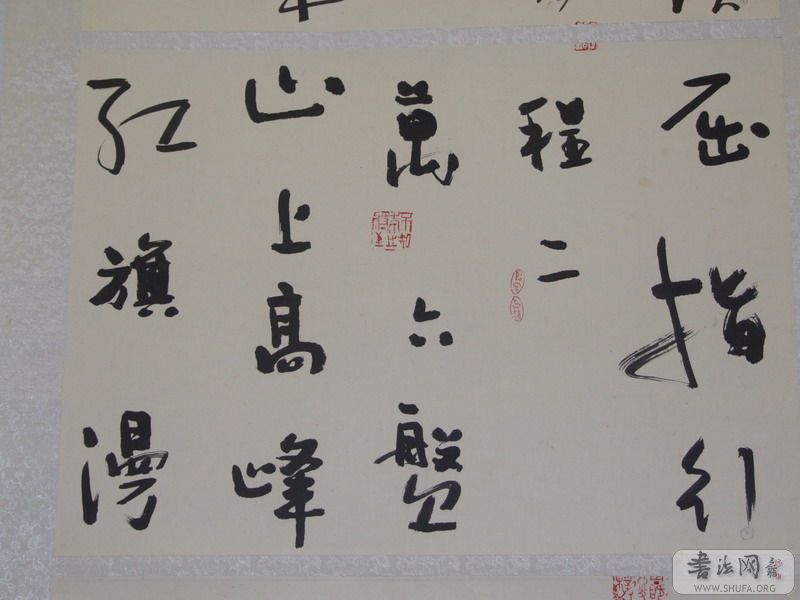 屈指行
程二
萬六盤
山上高峰
红旗漫
書法网
WWW.SHUFA.ORG